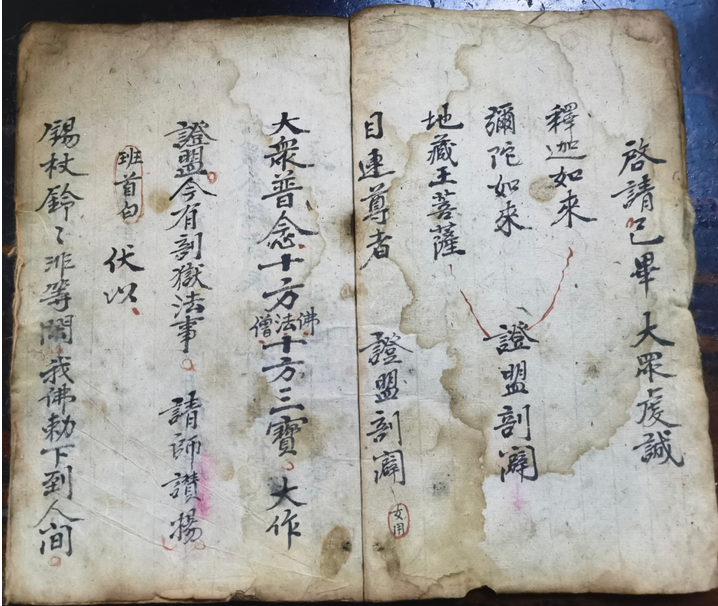 啓請已畢 大眾虔誠
釋迦如來
彌陀如來 證盟剖
地藏王菩薩
目連尊者 證盟剖 女用
大眾普念十方佛法僧十方三寶 大作
證盟今有剖獄法事 請師讃揚
班首白 伏以
錫杖鈴々非等閑我佛勅下到人間